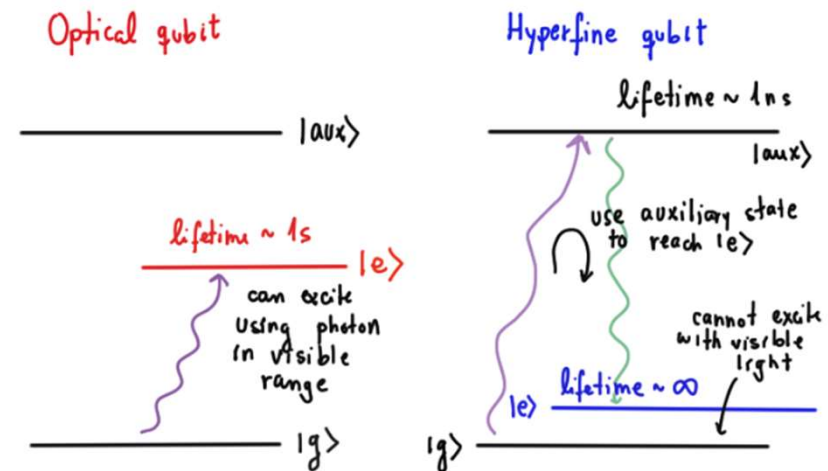 Optical qubit
|aux⟩
lifetime ~ 1s
|e⟩
can excite
using photon
in visible
range
|g⟩
Hyperfine qubit
lifetime ~ 1ns
|aux⟩
use auxiliary state
to reach |e⟩
cannot excite
with visible
light
lifetime ~ ∞
|e⟩
|g⟩